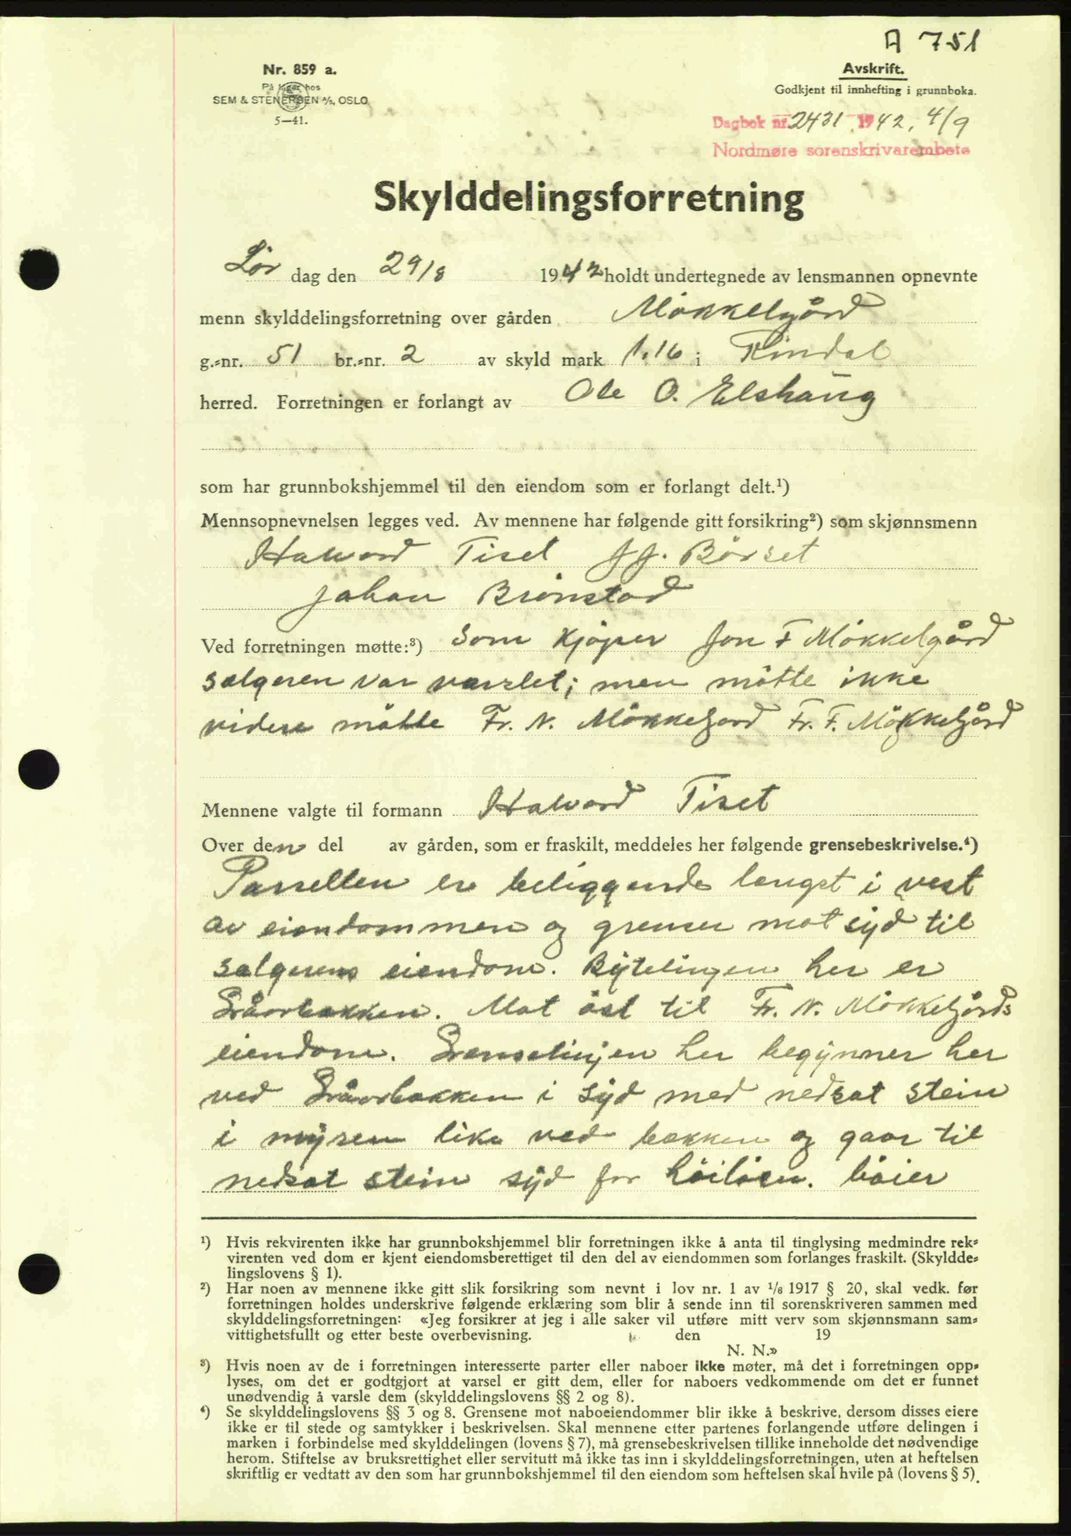 A 751
Nr. 859 a.
På lager hos
SEM & STENERSEN A/S, OSLO
5—41.
Avskrift.
Godkjent til innhefting i grunnboka.
Dagbok nr. 2431 1942, 4/9
Nordmøre sorenskrivarembete
Skylddelingsforretning
Lør dag den 29/8 1942 holdt undertegnede av lensmannen opnevnte
menn skylddelingsforretning over gården Mökkelgård
g.-nr. 51 br.-nr. 2 av skyld mark 1.16 i Rindal
herred. Forretningen er forlangt av Ole O. Elshaug
som har grunnbokshjemmel til den eiendom som er forlangt delt.¹)
Mennsopnevnelsen legges ved. Av mennene har følgende gitt forsikring²) som skjønnsmenn
Halvord Tiset J. J. Börset
Johan Brönstad
Ved forretningen møtte:³) Som kjöper Jon F Mökkelgård
selgeren var varslet; men mötte ikke
videre mötte Fr. N. Mökkelgård Fr. F. Mökkelgård
Mennene valgte til formann Halvord Tiset
Over den del av gården, som er fraskilt, meddeles her følgende grensebeskrivelse.⁴)
Parsellen er beliggende lengst i vest
av eiendommen og grenser mot syd til
selgerens eiendom. Bytelinjen her er
Gråorbekken. Mot öst til Fr. N. Mökkelgårds
eiendom. Grenselinjen her begynner her
ved Gråorbekken i syd med nedsat stein
i myren like ved bekken og gaar til
nedsat stein syd for höilöen. böier
¹) Hvis rekvirenten ikke har grunnbokshjemmel blir forretningen ikke å anta til tinglysing medmindre rek-
virenten ved dom er kjent eiendomsberettiget til den del av eiendommen som forlanges fraskilt. (Skyldde-
lingslovens § 1).
²) Har noen av mennene ikke gitt slik forsikring som nevnt i lov nr. 1 av 1/6 1917 § 20, skal vedk. før
forretningen holdes underskrive følgende erklæring som blir å sende inn til sorenskriveren sammen med
skylddelingsforretningen: «Jeg forsikrer at jeg i alle saker vil utføre mitt verv som skjønnsmann sam-
vittighetsfullt og etter beste overbevisning. den 19
N. N.»
³) Hvis noen av de i forretningen interesserte parter eller naboer ikke møter, må det i forretningen opp-
lyses, om det er godtgjort at varsel er gitt dem, eller for naboers vedkommende om det er funnet
unødvendig å varsle dem (skylddelingslovens §§ 2 og 8).
⁴) Se skylddelingslovens §§ 3 og 8. Grensene mot naboeiendommer blir ikke å beskrive, dersom disses eiere
ikke er til stede og samtykker i beskrivelsen. Skal mennene etter partenes forlangende utføre delingen i
marken i forbindelse med skylddelingen (lovens § 7), må grensebeskrivelsen tillike inneholde det nødvendige
herom. Stiftelse av bruksrettighet eller servitutt må ikke tas inn i skylddelingsforretningen, uten at heftelsen
skriftlig er vedtatt av den som har grunnbokshjemmel til den eiendom som heftelsen skal hvile på (lovens § 5).